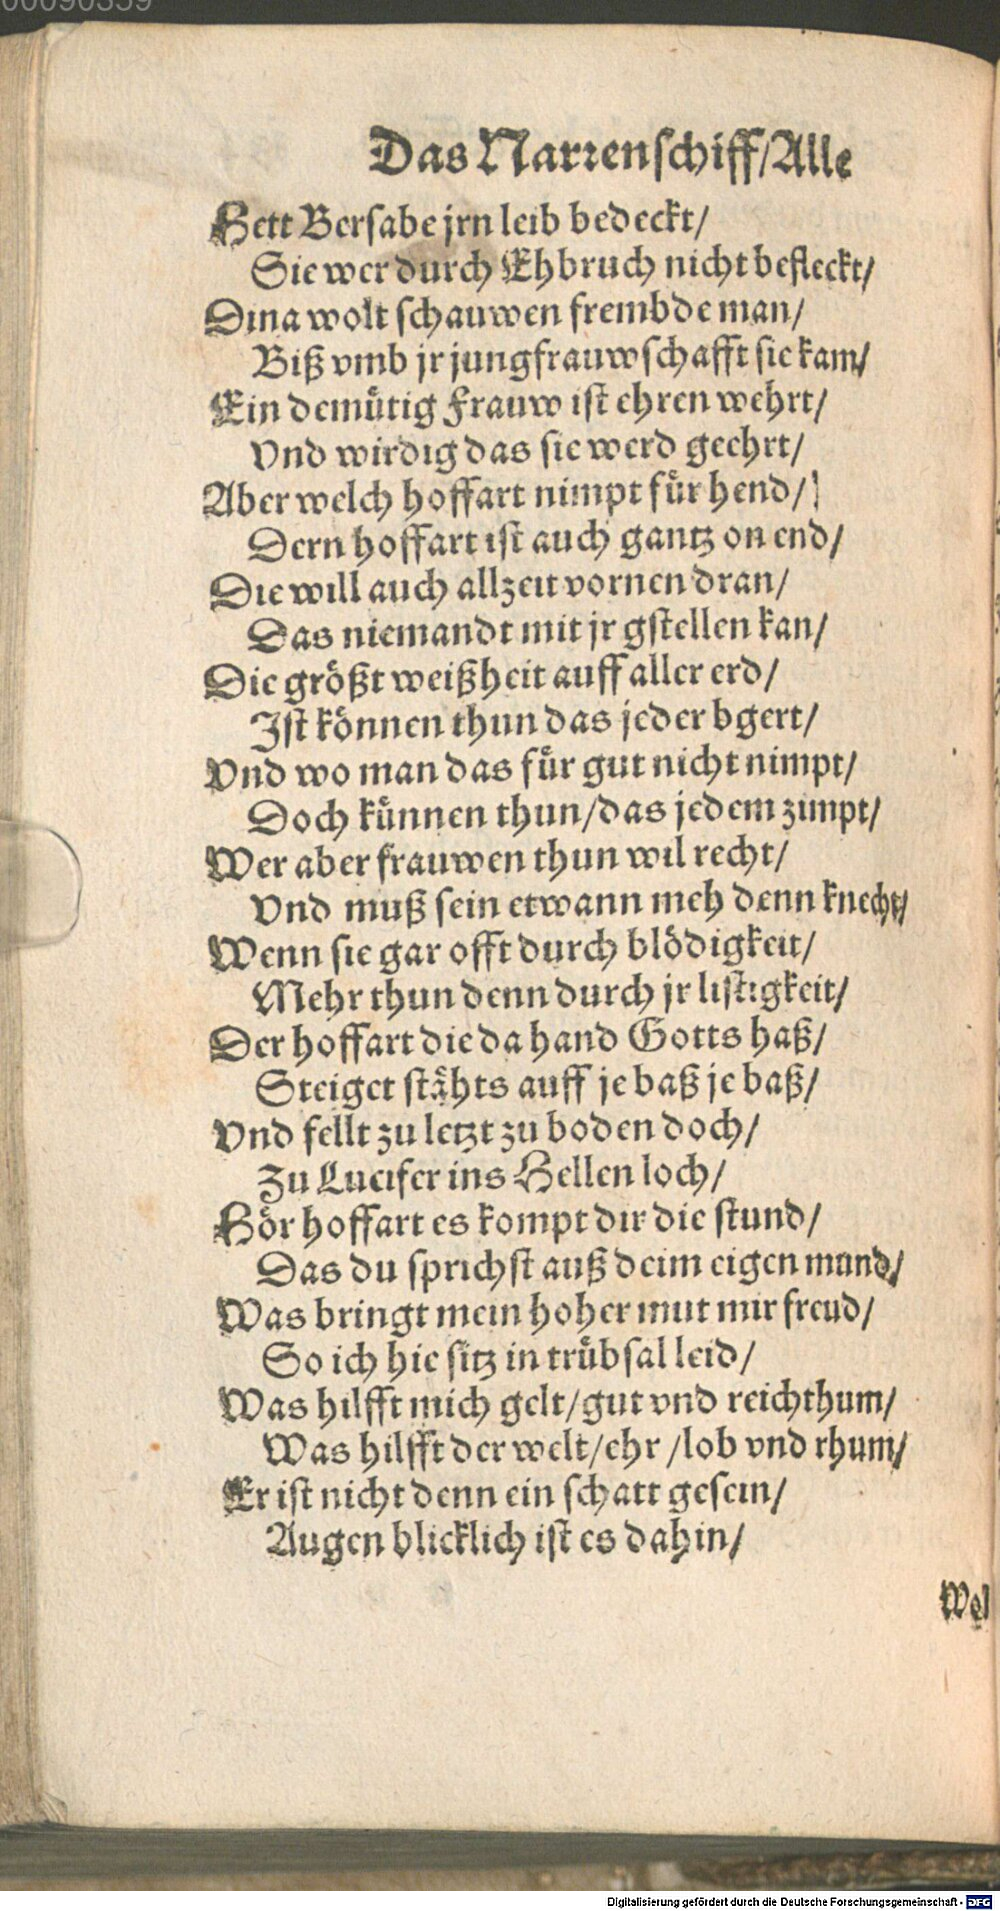 00090359
Das Narrenschiff/Alle
Hett Bersabe jrn leib bedeckt/
Sie wer durch Ehbruch nicht befleckt/
Dina wolt schauwen frembde man/
Biß vmb jr jungfrauwschafft sie kam/
Ein demütig Frauw ist ehren wehrt/
Vnd wirdig das sie werd geehrt/
Aber welch hoffart nimpt für hend/
Dern hoffart ist auch gantz on end/
Die will auch allzeit vornen dran/
Das niemandt mit jr gstellen kan/
Die größt weißheit auff aller erd/
Ist können thun das jeder bgert/
Vnd wo man das für gut nicht nimpt/
Doch künnen thun/das jedem zimpt/
Wer aber frauwen thun wil recht/
Vnd muß sein etwann meh denn knecht/
Wenn sie gar offt durch blödigkeit/
Mehr thun denn durch jr listigkeit/
Der hoffart die da hand Gotts haß/
Steiget stähts auff je baß je baß/
Vnd fellt zu letzt zu boden doch/
Zu Lucifer ins Hellen loch/
Hör hoffart es kompt dir die stund/
Das du sprichst auß deim eigen mund/
Was bringt mein hoher mut mir freud/
So ich hie sitz in trübsal leid/
Was hilfft mich gelt/gut vnd reichthum/
Was hilfft der welt/ehr/lob vnd rhum/
Er ist nicht denn ein schatt gesein/
Augen blicklich ist es dahin/
Wel
Digitalisierung gefördert durch die Deutsche Forschungsgemeinschaft - DFG